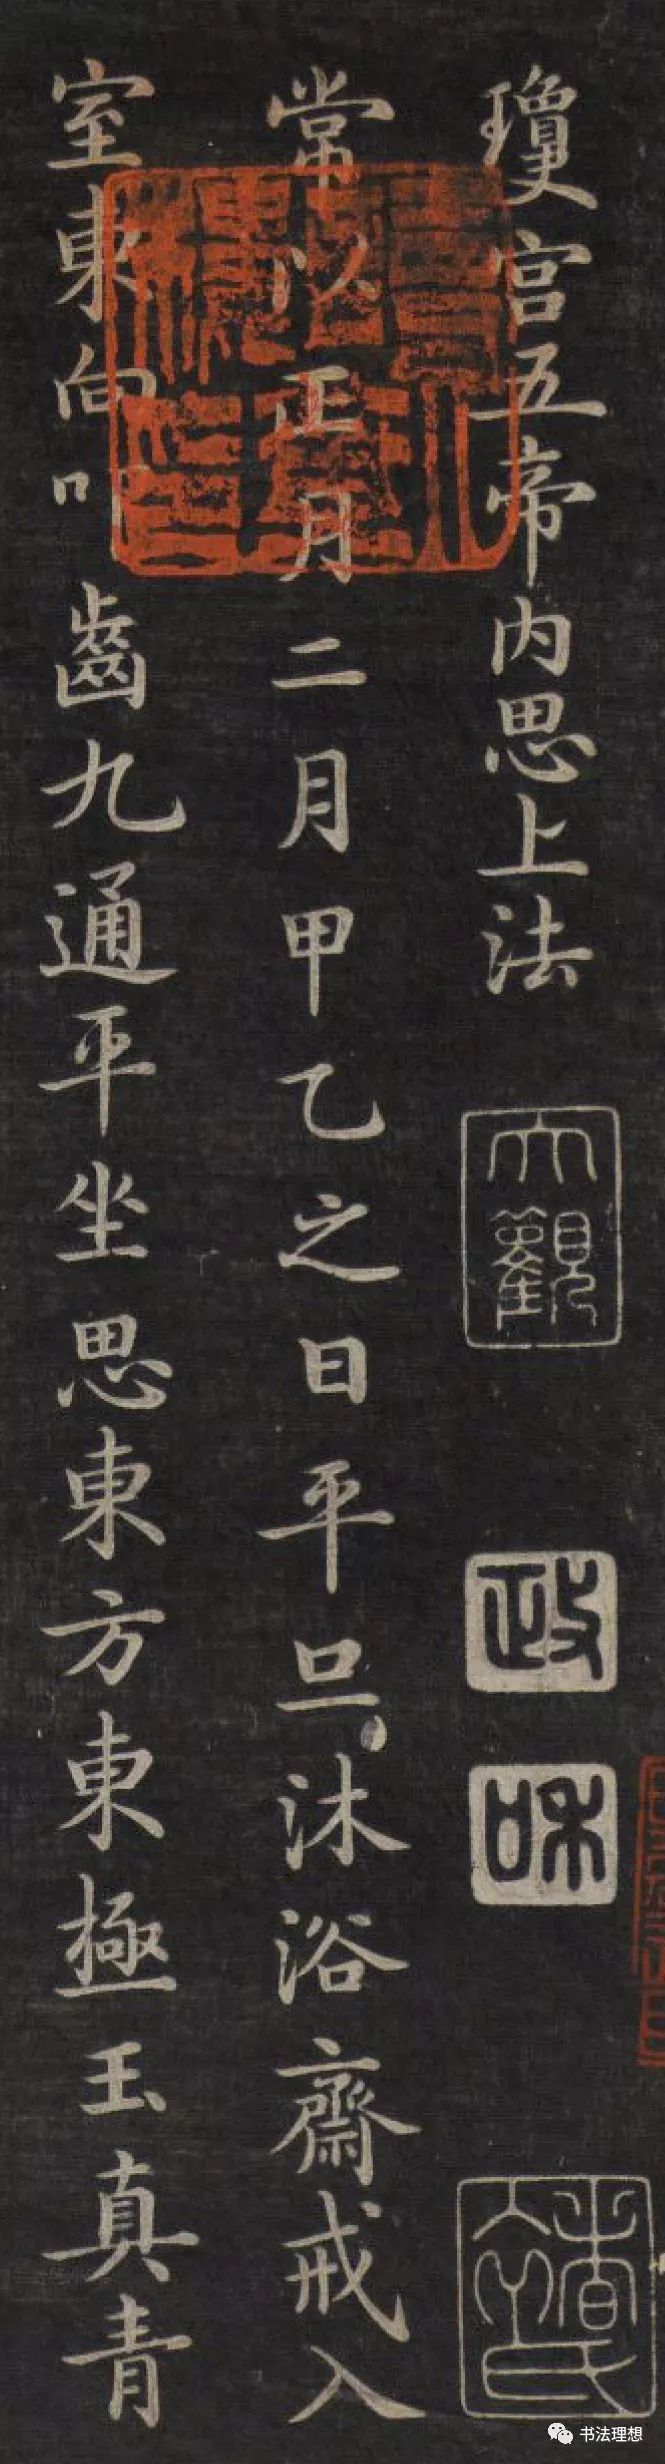 瓊宮五帝內思上法
大觀
政
和
常以正月二月甲乙之日平旦沐浴齋戒入
室東向叩齒九通平坐思東方東極玉真青
书法理想